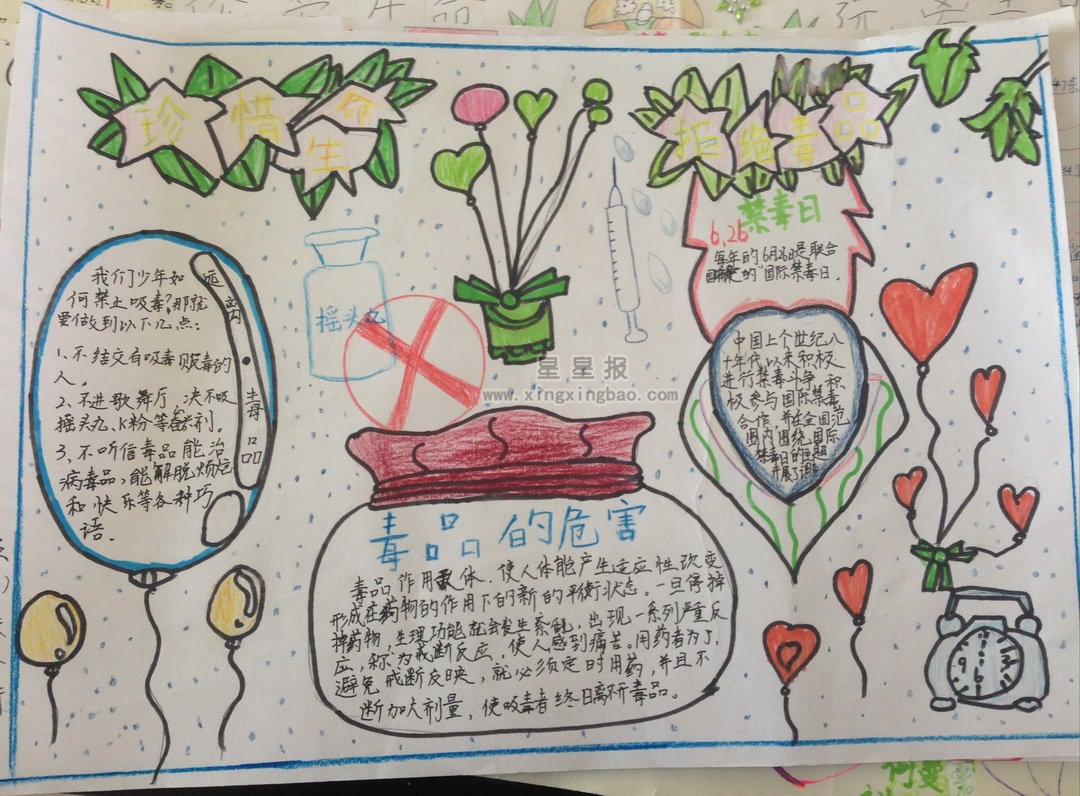 珍惜生命
拒绝毒品
禁毒日
6.26
每年的6月26日是联合
国确定的"国际禁毒日。
我们少年如
何禁止吸毒,那就
要做到以下几点:
1、不结交有吸毒贩毒的
人。
2、不进歌舞厅,决不吸
摇头丸、K粉等毒剂。
3、不听信毒品能治
病毒品,能解脱烦恼
和快乐等各种巧
语。
远离·毒品
摇头丸
星星报
www.xingxingbao.com
中国上个世纪八
十年代以来积极
进行禁毒斗争,积
极参与国际禁毒
合作,并在全国范
围内围绕国际
禁毒日的主题
开展了
毒品的危害
毒品作用人体,使人体能产生适应性改变
形成在药物的作用下的新的平衡状态。一旦停掉
掉药物,生理功能就会发生紊乱,出现一系列严重反
应,称为戒断反应,使人感到痛苦。用药者为了
避免戒断反映,就必须定时用药,并且不
断加大剂量,使吸毒者终日离不开毒品。
9
12
3
6